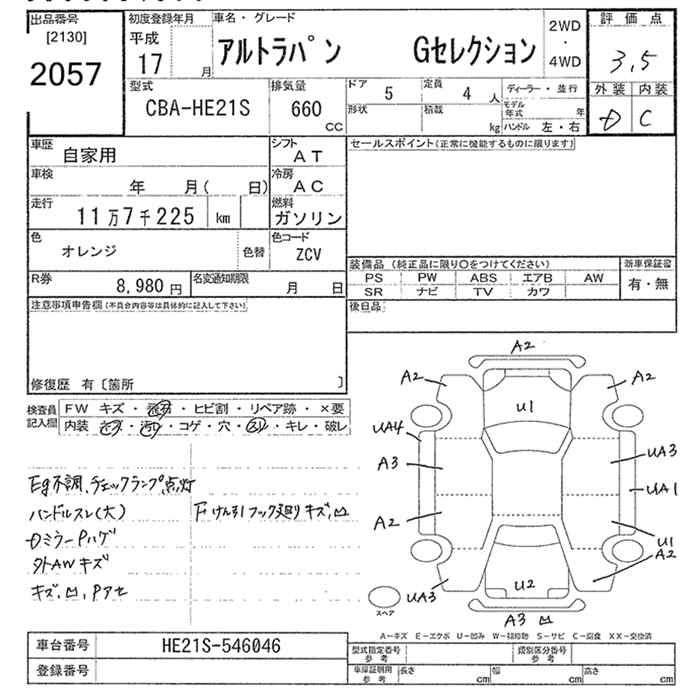 出品番号
[2130]
2057
初度登録年月
平成
17 月
車名・グレード
アルトラパン Gセレクション
2WD
・
4WD
評価点
3,5
外装 内装
D C
型式
CBA-HE21S
排気量
660
CC
ドア 5
定員 4 人
形状
積載
kg
ディーラー・並行
モデル年式 年
ハンドル 左・右
車歴
自家用
シフト
AT
車検
年 月( 日)
冷房
AC
走行
11万7千225 km
燃料
ガソリン
色
オレンジ
色替
色コード
ZCV
R券
8,980円
名変通知期限
月 日
セールスポイント(正常に機能するものに限ります)
装備品 (純正品に限り○をつけてください)
新車保証書
PS PW ABS エアB AW
SR ナビ TV カワ
有・無
後日品
注意事項申告欄(不具合内容等は具体的に記入して下さい)
修復歴 有〔箇所 〕
検査員
記入欄
FW キズ・飛石・ヒビ割・リペア跡・×要
内装 キズ・汚れ・コゲ・穴・スレ・キレ・破レ
Eg不調,チェックランプ点灯
ハンドルスレ(大)
下けん引フック廻りキズ,凹
ミラーPハゲ
外AWキズ
キズ,凹,Pアセ
A2
A2
A2
U1
UA4
A3
UA3
UA1
A2
U1
A2
UA3
U2
A3 凹
スペア
A-キズ E-エクボ U-凹み W-補修跡 S-サビ C-腐食 XX-交換済
車台番号
HE21S-546046
登録番号
型式指定番号
参考
類別区分番号
参考
車庫証明用
参考
長さ cm
幅 cm
高さ cm